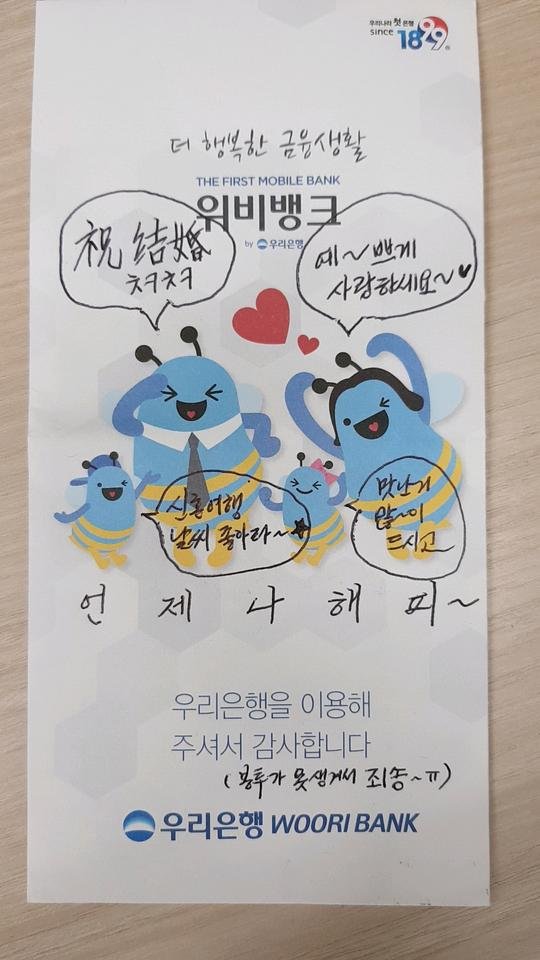 우리나라 첫 은행
since 1899
더 행복한 금융생활
THE FIRST MOBILE BANK
위비뱅크
by 우리은행
祝 結婚
ㅊㅋㅊㅋ
예~쁘게
사랑하세요~♥
신혼여행
날씨 좋아라~★
맛난거
많~이
드시고
언 제 나 해 피~
우리은행을 이용해
주셔서 감사합니다
(봉투가 못생겨서 죄송~ㅠ)
우리은행 WOORI BANK